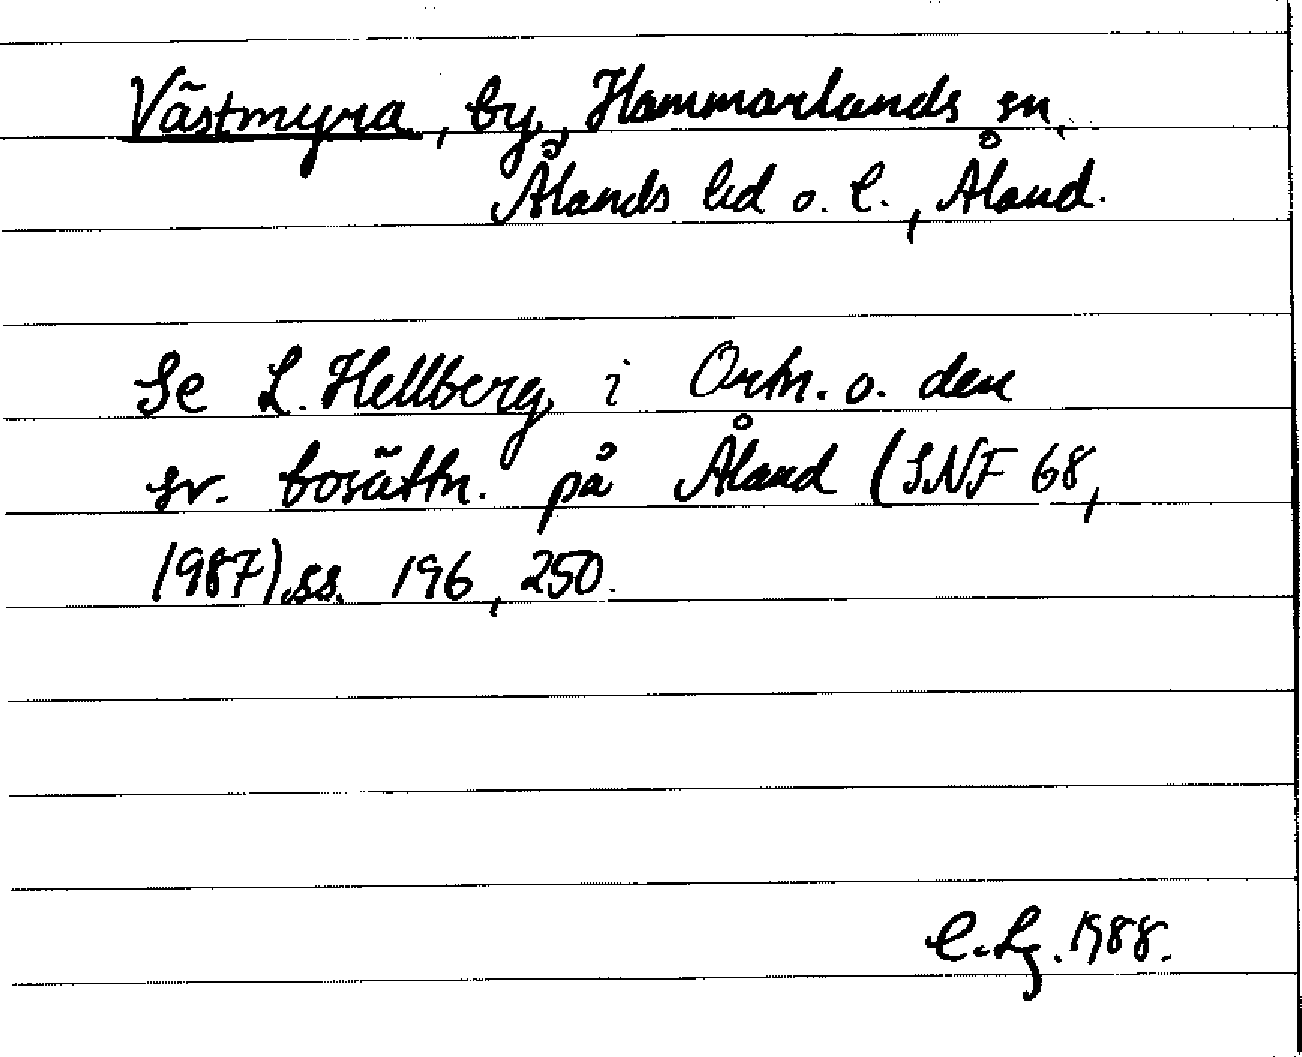 Västmyra, by, Hammarlands sn,
Ålands hd o. l., Åland.
Se L. Hellberg i Ortn. o. den
sv. bosättn. på Åland (SNF 68,
1987), ss. 196, 250.
C. Lg. 1988.